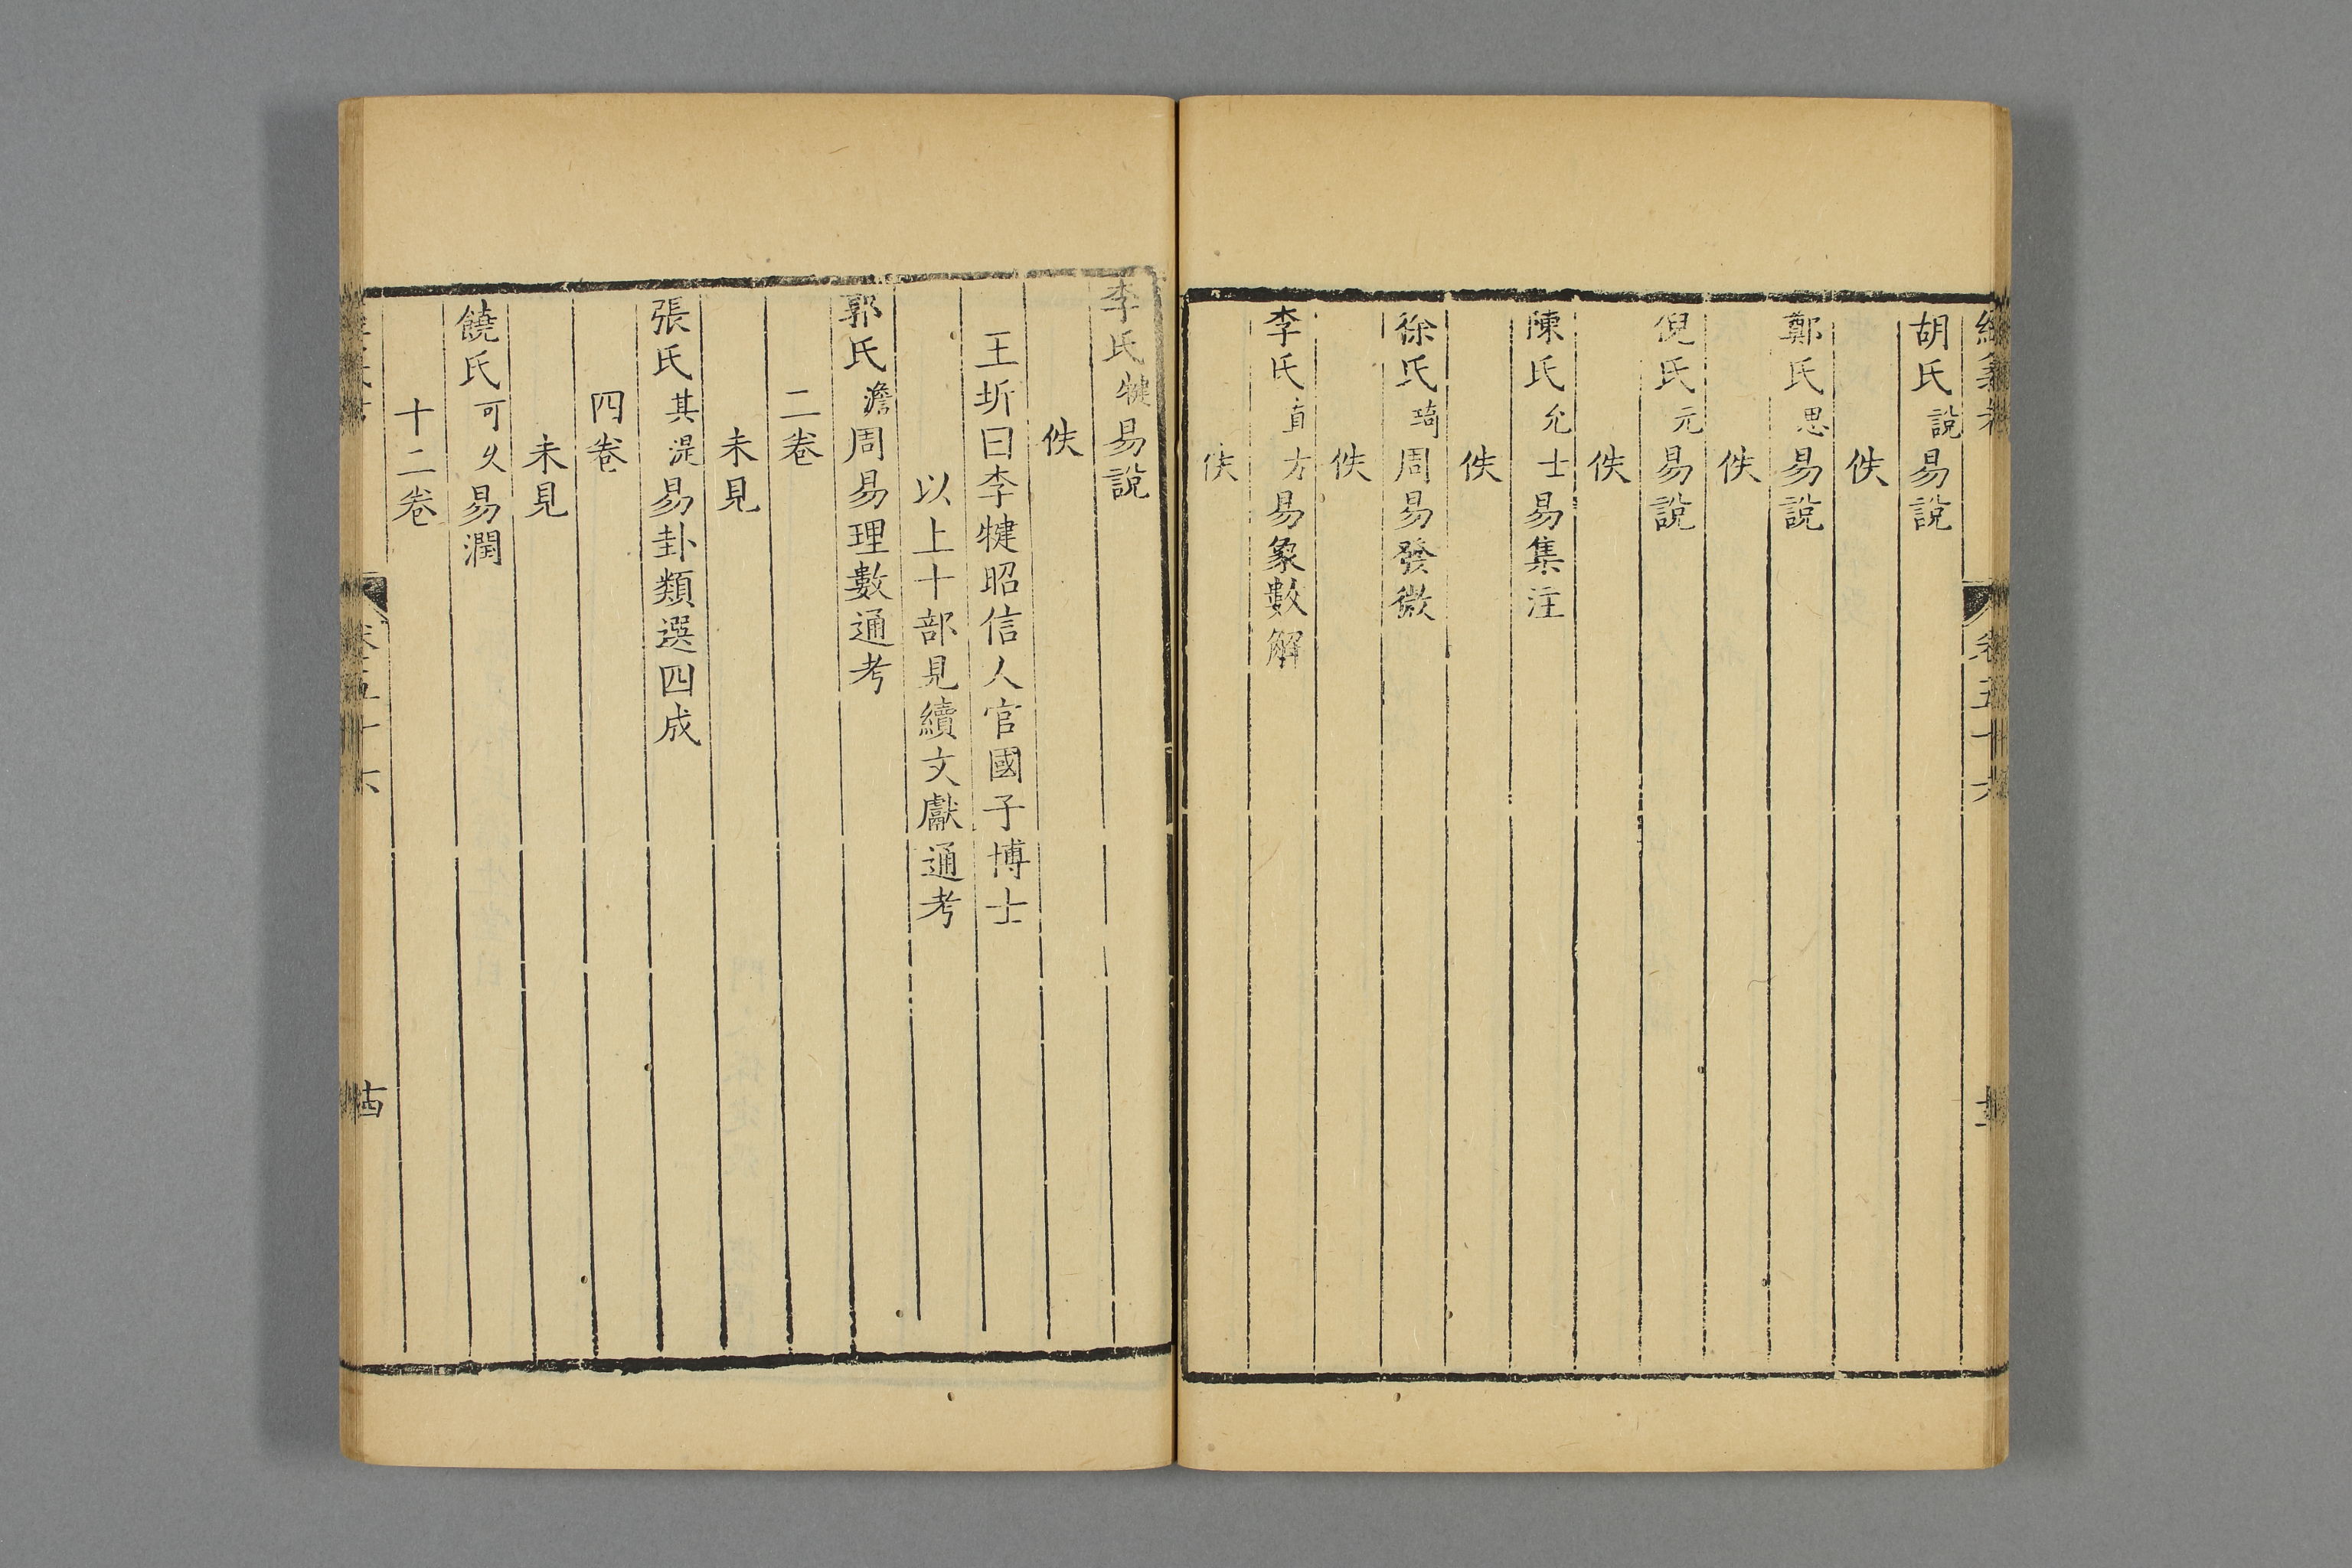 胡氏說易說
佚
鄭氏思易說
佚
倪氏元易說
佚
陳氏允士易集注
佚
徐氏琦周易發微
佚
李氏直方易象數解
佚
李氏犍易說
佚
王圻曰李犍昭信人官國子博士
以上十部見續文獻通考
郭氏澹周易理數通考
二卷
未見
張氏其湜易卦類選四成
四卷
未見
饒氏可久易潤
十二卷
卷五十六